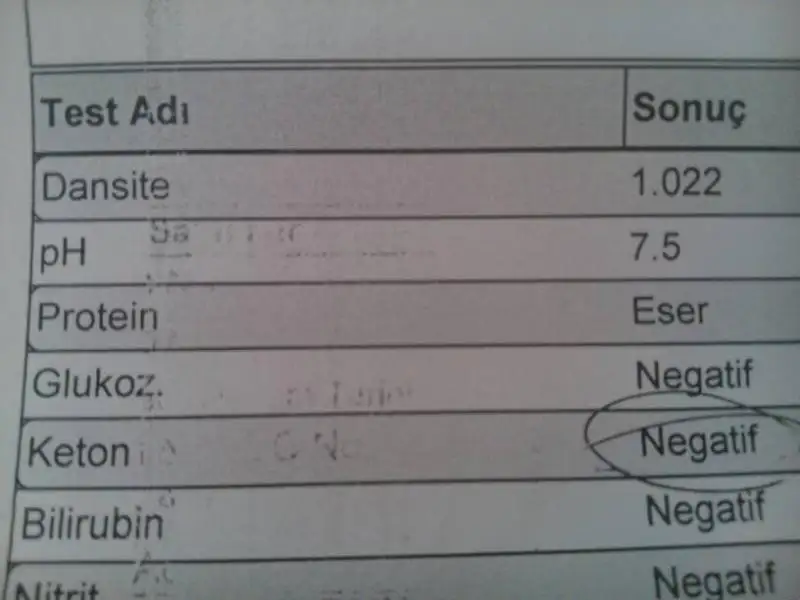 Test Adı Sonuç
Dansite 1.022
pH 7.5
Protein Eser
Glukoz. Negatif
Keton Negatif
Bilirubin Negatif
Nitrit Negatif